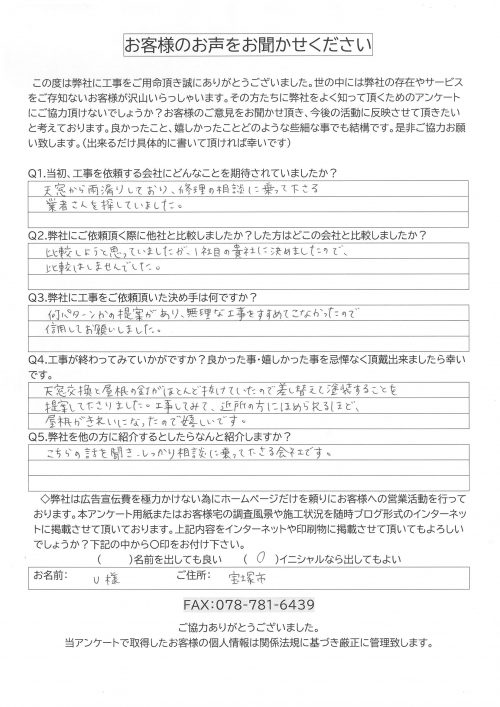 お客様のお声をお聞かせください
この度は弊社に工事をご用命頂き誠にありがとうございました。世の中には弊社の存在やサービス
をご存知ないお客様が沢山いらっしゃいます。その方たちに弊社をよく知って頂くためのアンケート
にご協力頂けないでしょうか？お客様のご意見をお聞かせ頂き、今後の活動に反映させて頂きたい
と考えております。良かったこと、嬉しかったことどのような些細な事でも結構です。是非ご協力お願
い致します。（出来るだけ具体的に書いて頂ければ幸いです）
Q1.当初、工事を依頼する会社にどんなことを期待されていましたか？
天窓から雨漏りしており、修理の相談に乗って下さる
業者さんを探していました。
Q2.弊社にご依頼頂く際に他社と比較しましたか？した方はどこの会社と比較しましたか？
比較しようと思っていましたが、1社目の貴社に決めましたので、
比較はしませんでした。
Q3.弊社に工事をご依頼頂いた決め手は何ですか？
何パターンかの提案があり、無理な工事をすすめてこなかったので
信用してお願いしました。
Q4.工事が終わってみていかがですか？良かった事・嬉しかった事を忌憚なく頂戴出来ましたら幸い
です。
天窓交換と屋根の釘がほとんど抜けていたので差し替えて塗装することを
提案して下さりました。工事してみて、近所の方にほめられるほど、
屋根がきれいになったので嬉しいです。
Q5.弊社を他の方に紹介するとしたらなんと紹介しますか？
こちらの話を聞き、しっかり相談に乗って下さる会社です。
◇弊社は広告宣伝費を極力かけない為にホームページだけを頼りにお客様への営業活動を行って
おります。本アンケート用紙またはお客様宅の調査風景や施工状況を随時ブログ形式のインターネッ
トに掲載させて頂いております。上記内容をインターネットや印刷物に掲載させて頂いてもよろしい
でしょうか？下記の中から〇印をお付け下さい。
（　　）名前を出しても良い　（ 〇 ）イニシャルなら出してもよい
お名前： U 様 ご住所： 宝塚市
FAX:078-781-6439
ご協力ありがとうございました。
当アンケートで取得したお客様の個人情報は関係法規に基づき厳正に管理致します。